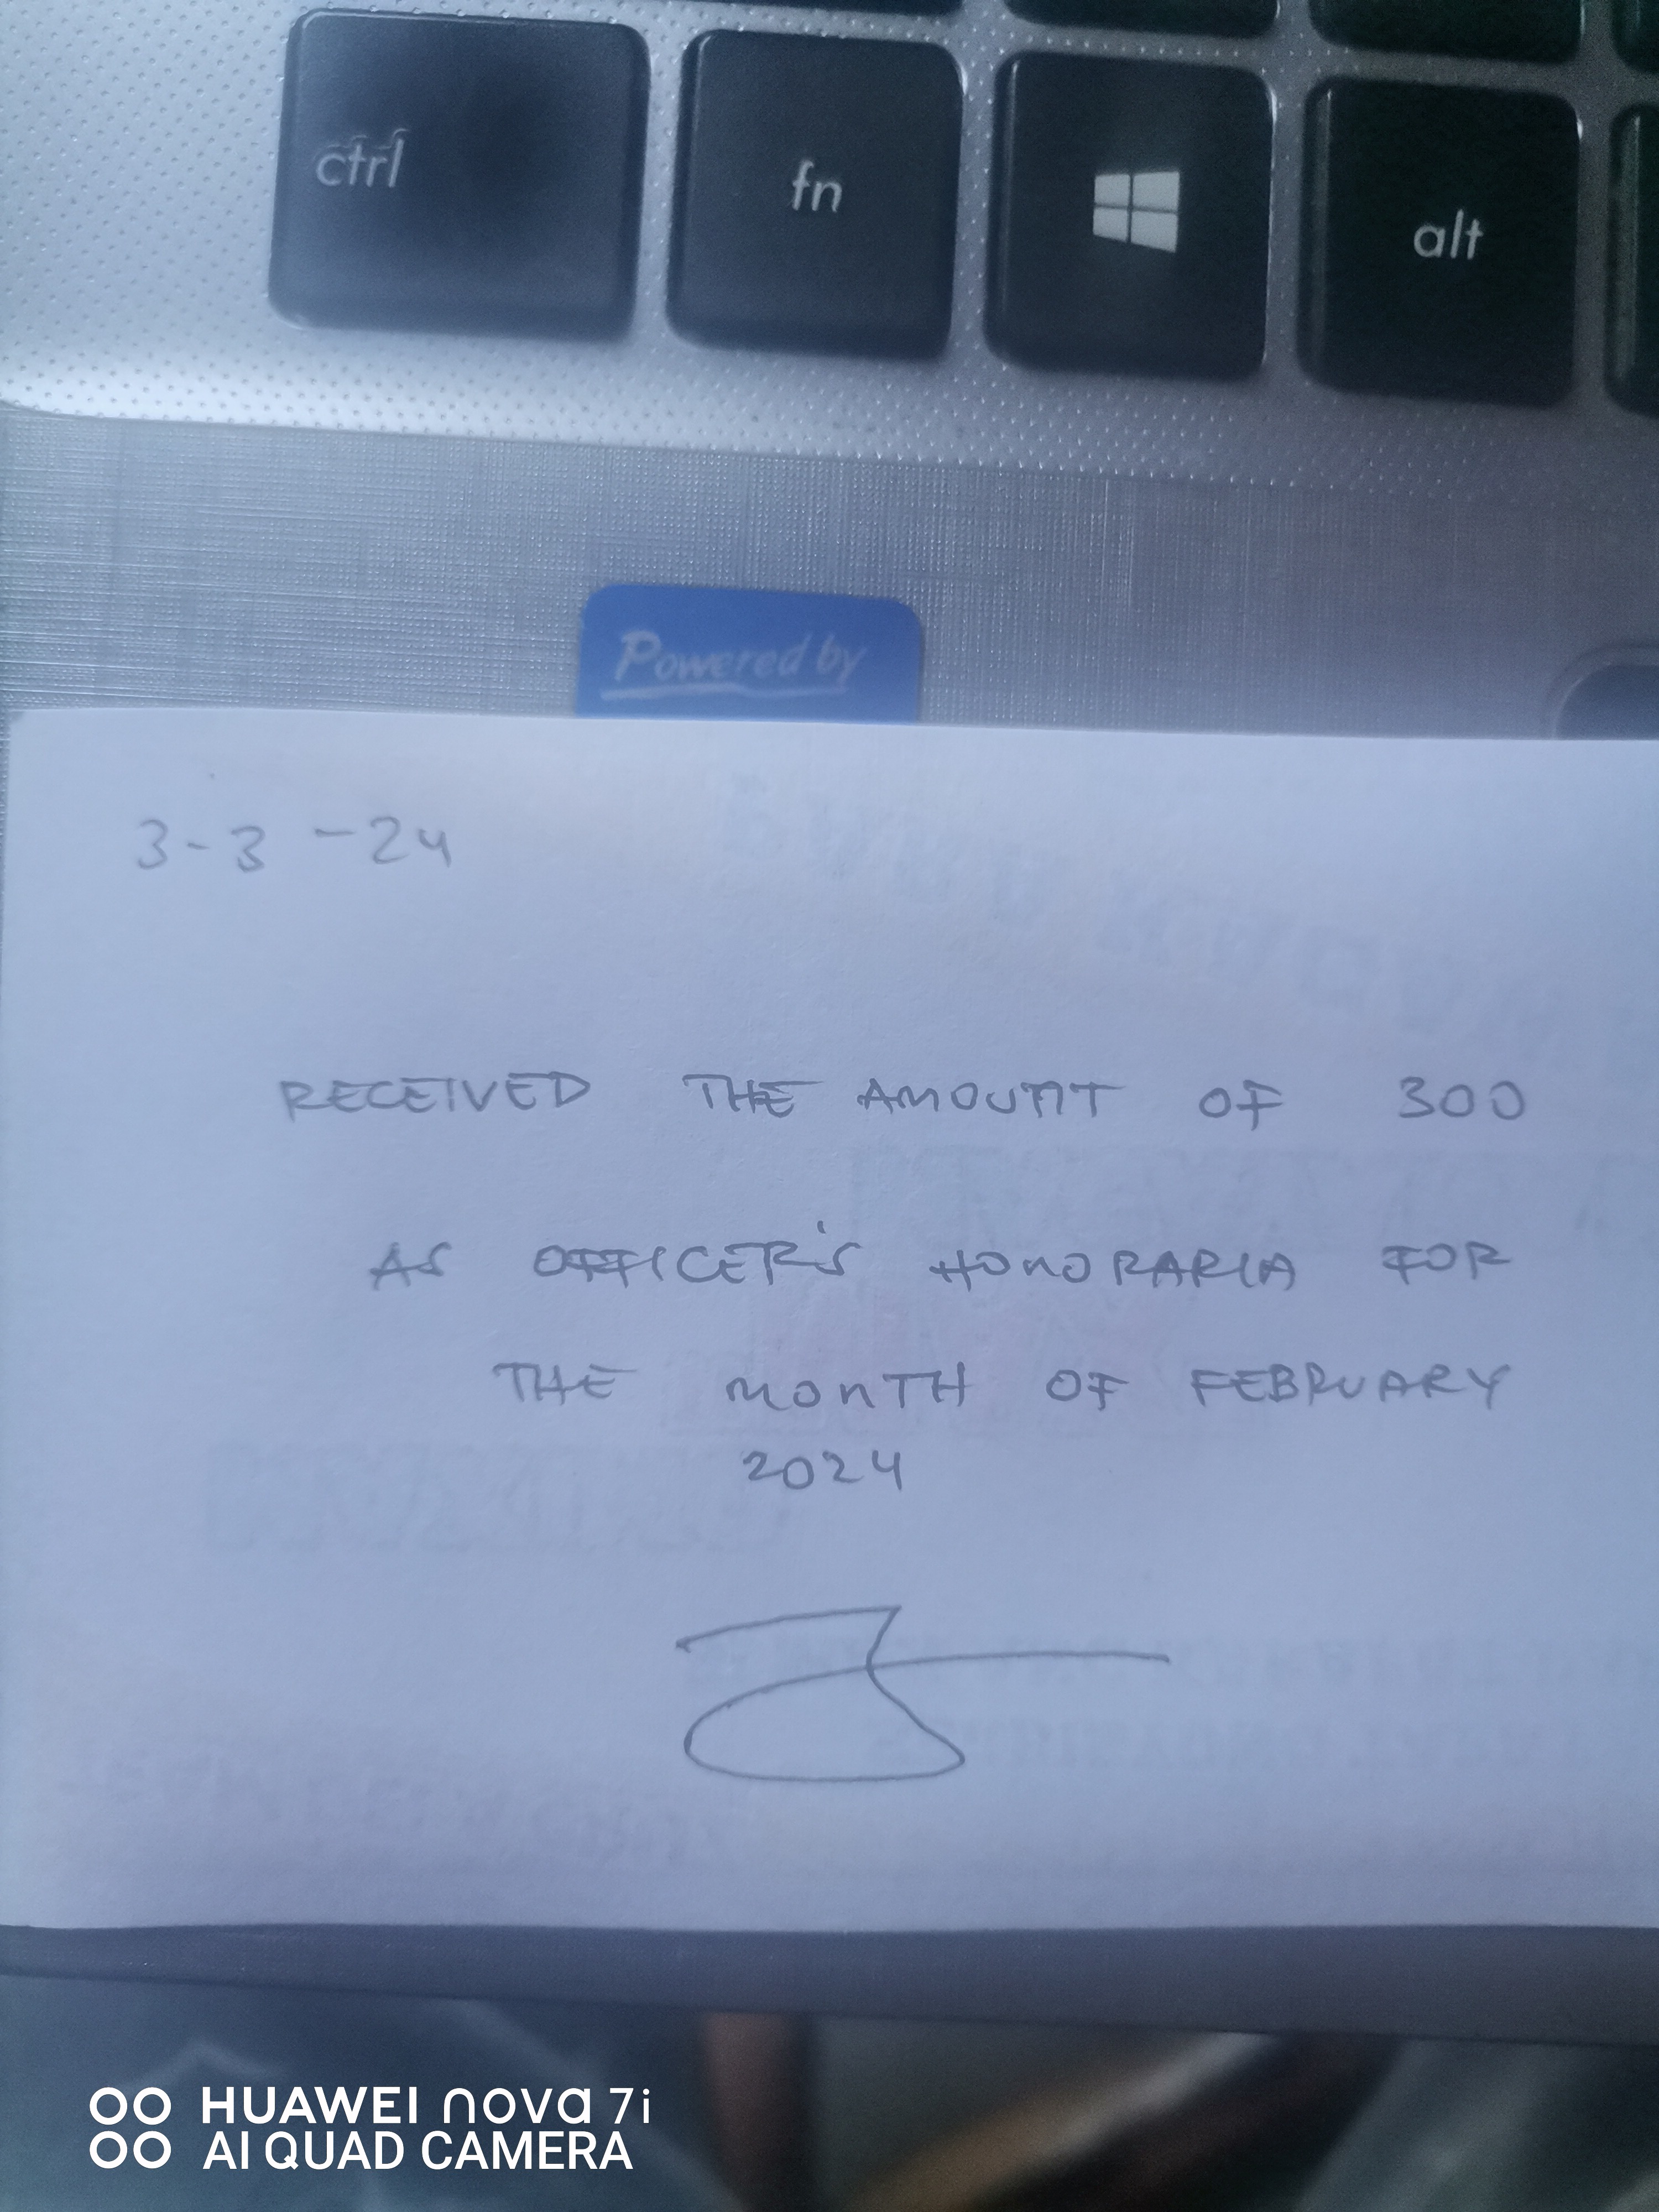 ctrl fn alt
Powered by
3-3-24
RECEIVED THE AMOUNT OF 300
AS OFFICER'S HONORARIA FOR
THE MONTH OF FEBRUARY
2024
HUAWEI nova 7i
AI QUAD CAMERA